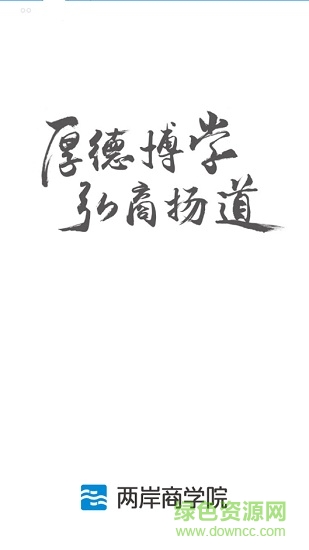 厚德博学
弘商扬道
两岸商学院
绿色资源网
www.downcc.com